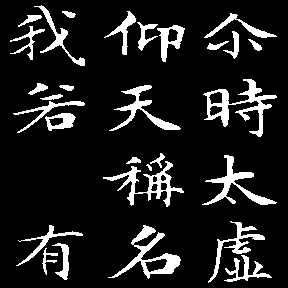 尒時太虛
仰天稱名
我若有